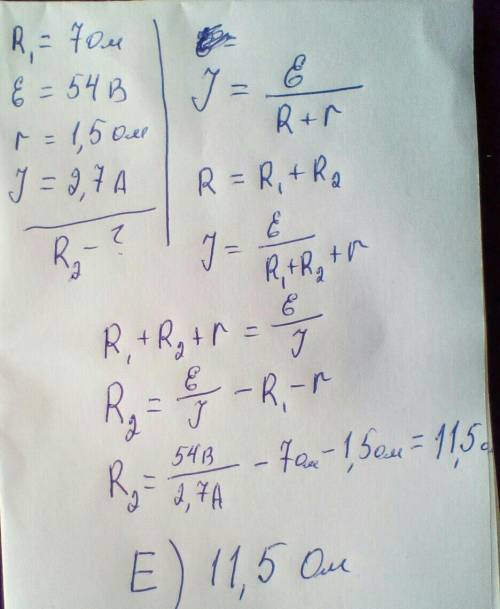 R₁ = 7 Ом
ε = 54 В
r = 1,5 Ом
J = 2,7 А
R₂ – ?
J = ε / (R + r)
R = R₁ + R₂
J = ε / (R₁ + R₂ + r)
R₁ + R₂ + r = ε / J
R₂ = ε / J – R₁ – r
R₂ = 54 В / 2,7 А – 7 Ом – 1,5 Ом = 11,5
E) 11,5 Ом